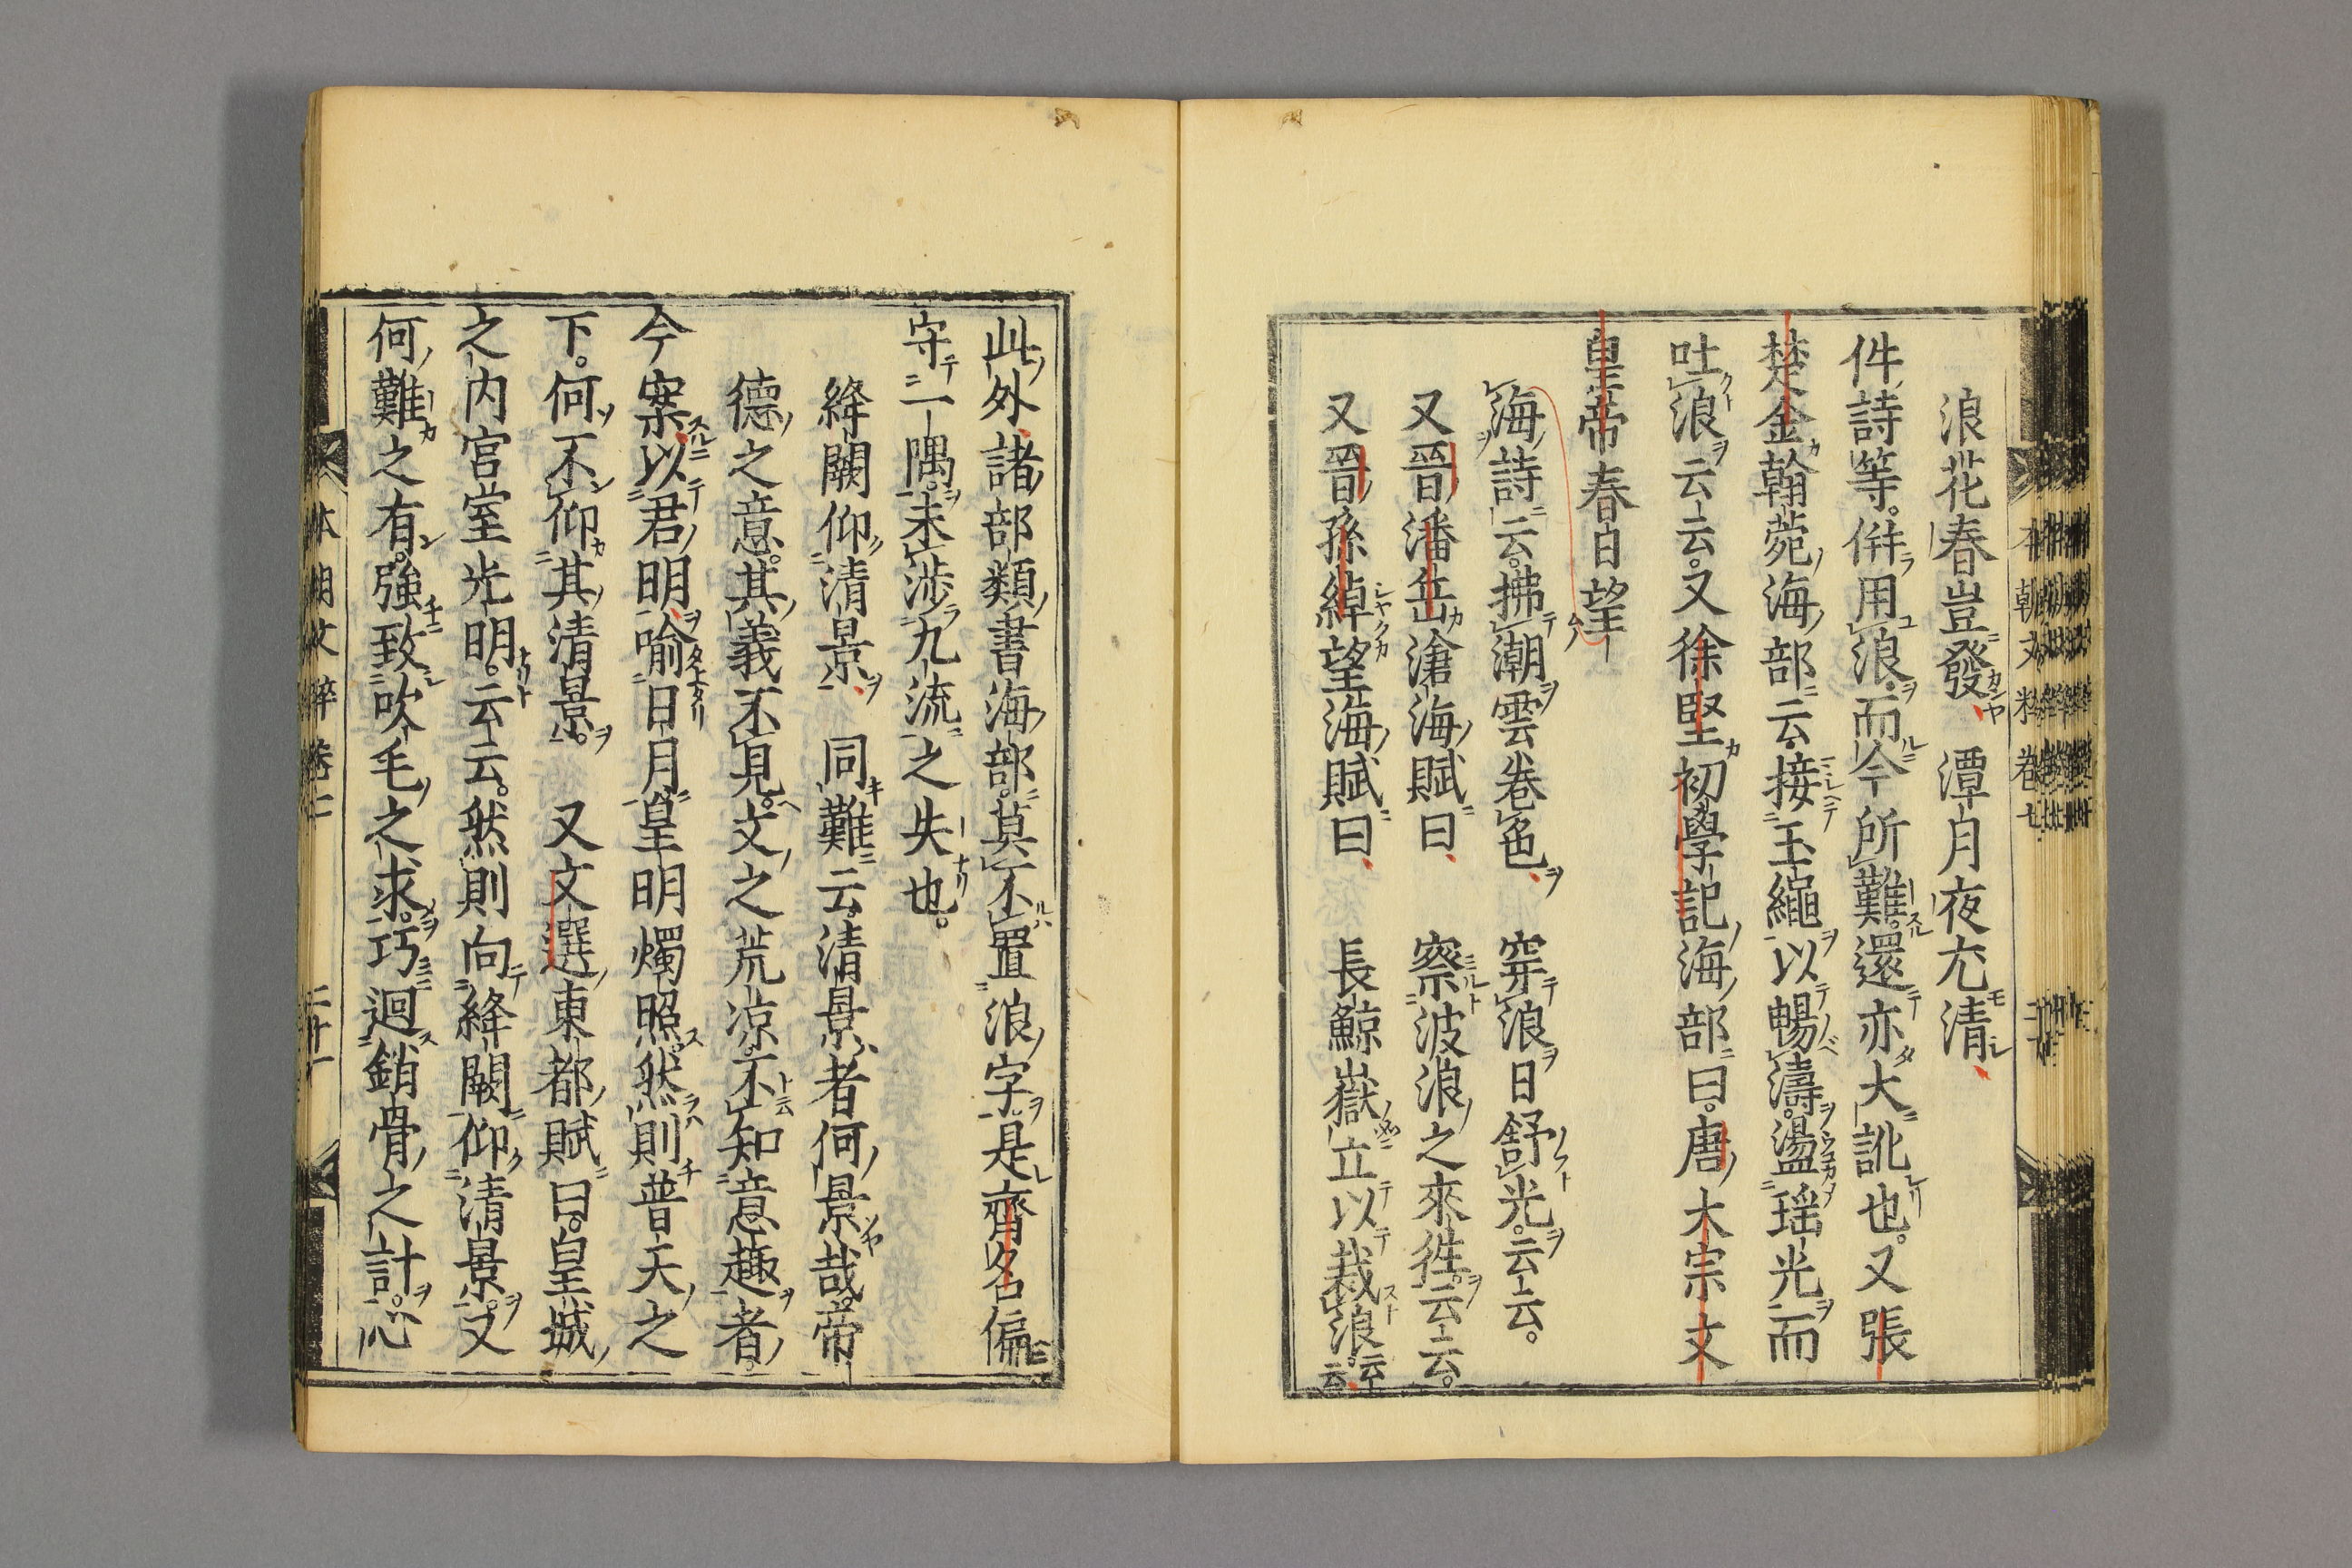 浪花春豈發潭月夜冘清
件詩等。併用浪而今所難。還亦大訛也。又張
楚金翰苑海部云接玉繩以暢濤。盪瑶光而
吐浪云云。又徐堅初學記海部曰。唐太宗文
皇帝春日望
海詩云。拂潮雲卷色穿浪日舒光。云云。
又晉潘岳滄海賦曰察波浪之來徃。云云。
又晉孫綽望海賦曰長鯨嶽立以裁浪。云云
此外諸部類書海部。莫不置浪字。是齊名偏
守一隅。未渉九流之失也。
絳闕仰清景同難云。清景者何景哉。帝
德之意。其義不見。文之荒凉。不知意趣者
今案以君明喻日月皇明燭照。然則普天之
下。何不仰其清景。又文選東都賦曰。皇城
之内宮室光明。云云。然則向絳闕仰清景。又
何難之有。強致吹毛之求。巧迴銷骨之計。心
本朝文粹卷七